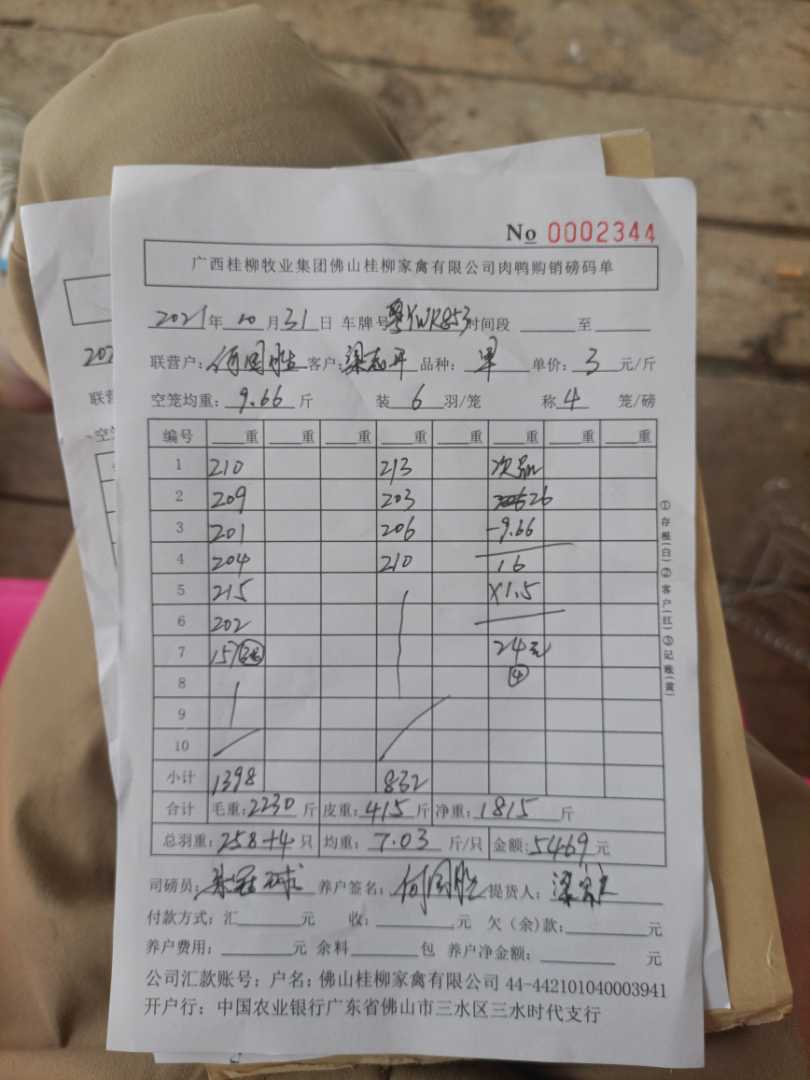 No 0002344
广西桂柳牧业集团佛山桂柳家禽有限公司肉鸭购销磅码单
2021年10月31日 车牌号粤YWK853时间段 至
联营户: 何国胜 客户: 品种: 单价: 3 元/斤
空笼均重: 9.66 斤 装 6 羽/笼 称 4 笼/磅
编号 重 重 重 重 重 重 重 重
1 210 213 次品
2 209 203 26
3 201 206 -9.66
4 204 210 16
5 215 X1.5
6 202
7 157 24元
8 4
9
10
小计 1398 832
合计 毛重: 2230 斤 皮重: 415 斤 净重: 1815 斤
总羽重: 258+4 只 均重: 7.03 斤/只 金额: 5469 元
司磅员: 养户签名: 何国胜 提货人:
付款方式: 汇 元 收: 元 欠(余)款: 元
养户费用: 元 余料 包 养户净金额: 元
公司汇款账号: 户名: 佛山桂柳家禽有限公司 44-442101040003941
开户行: 中国农业银行广东省佛山市三水区三水时代支行
①存根(白)②客户(红)③记账(黄)
202
联营
空